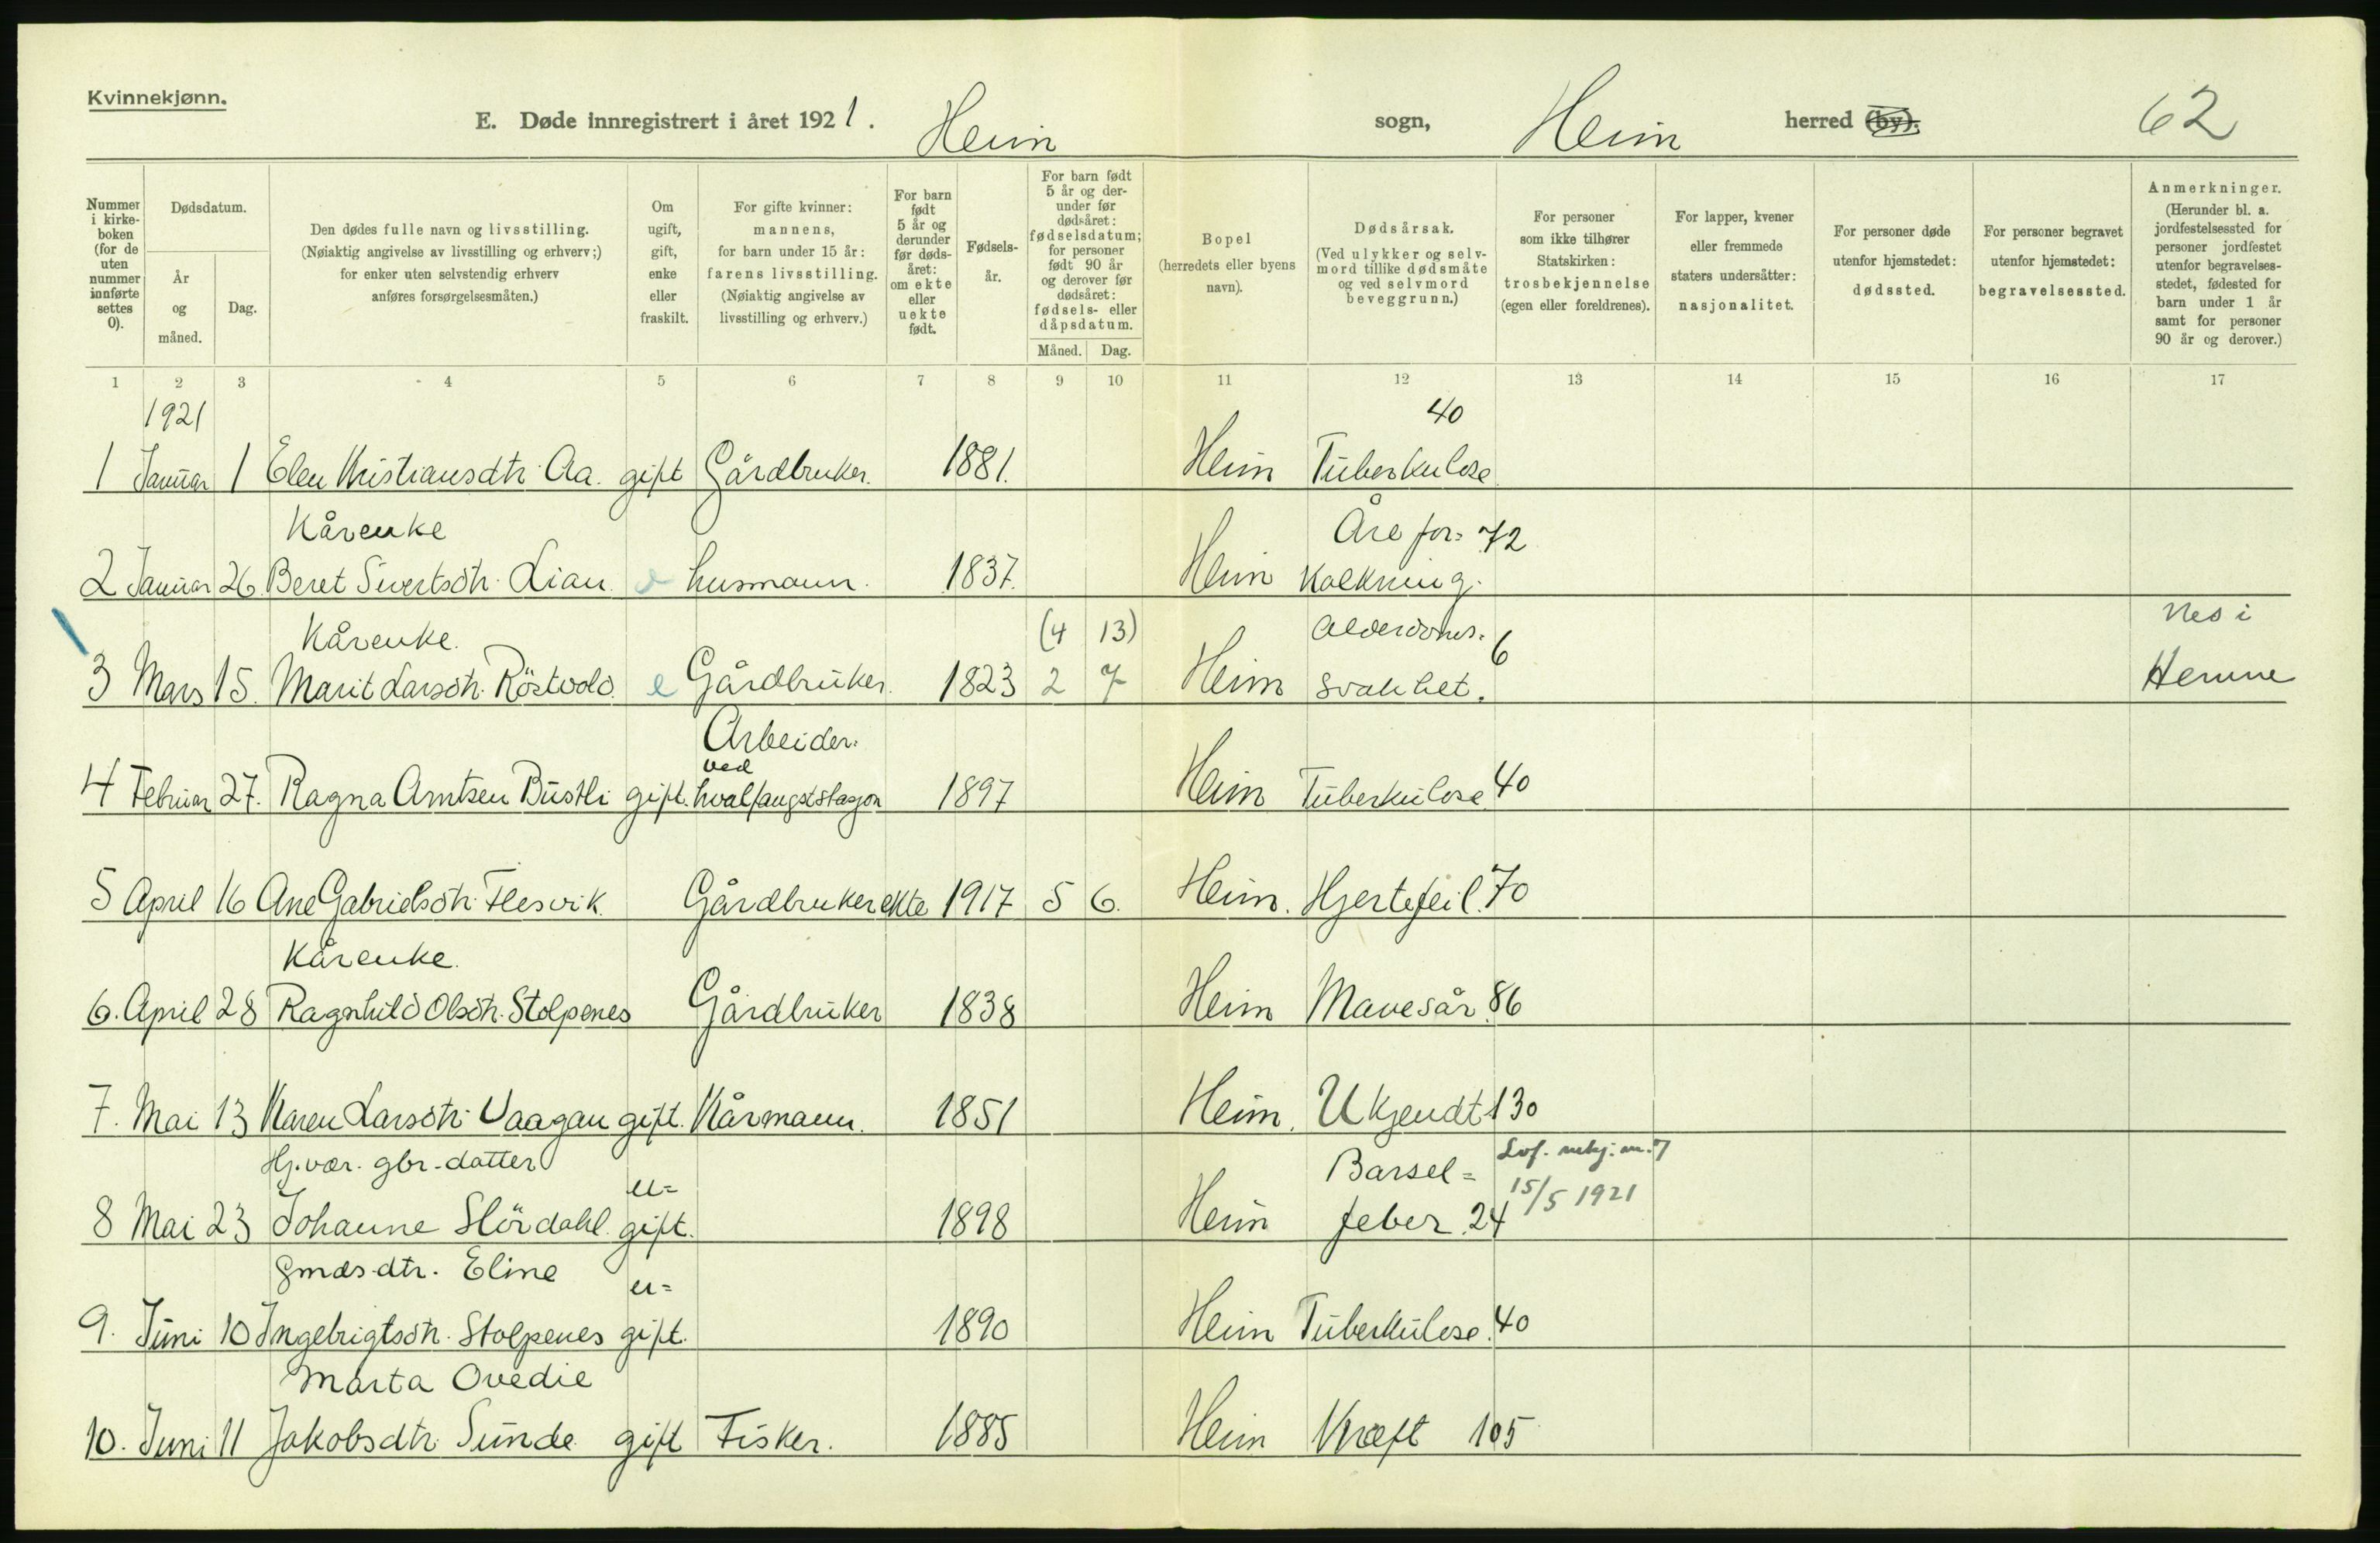 Kvinnekjønn.
E. Døde innregistrert i året 1921. Heim sogn, Heim herred (by). 62
Nummer i kirkeboken (for de uten nummer innførte settes 0).
Dødsdatum.
År og måned.
Dag.
Den dødes fulle navn og livsstilling. (Nøiaktig angivelse av livsstilling og erhverv;) for enker uten selvstendig erhverv anføres forsørgelsesmåten.)
Om ugift, gift, enke eller fraskilt.
For gifte kvinner: mannens, for barn under 15 år: farens livsstilling. (Nøiaktig angivelse av livsstilling og erhverv.)
For barn født 5 år og derunder før dødsåret: om ekte eller uekte født.
Fødselsår.
For barn født 5 år og derunder før dødsåret: fødselsdatum; for personer født 90 år og derover før dødsåret: fødsels- eller dåpsdatum.
Måned. Dag.
Bopel (herredets eller byens navn).
Dødsårsak. (Ved ulykker og selvmord tillike dødsmåte og ved selvmord beveggrunn.)
For personer som ikke tilhører Statskirken: trosbekjennelse (egen eller foreldrenes).
For lapper, kvener eller fremmede staters undersåtter: nasjonalitet.
For personer døde utenfor hjemstedet: dødssted.
For personer begravet utenfor hjemstedet: begravelsessted.
Anmerkninger. (Herunder bl. a. jordfestelsessted for personer jordfestet utenfor begravelsesstedet, fødested for barn under 1 år samt for personer 90 år og derover.)
1 2 3 4 5 6 7 8 9 10 11 12 13 14 15 16 17
1921 40
1 Januar 1 Elen Kristiansdtr. Aa. gift Gårdbruker. 1881. Heim Tuberkulose
Kårenke Åre for= 72
2 Januar 26. Beret Sivertsdtr. Lian. e husmann. 1837. Heim kalkning.
Kårenke. (4 13) Alderdoms. 6 Nes i
3 Mars 15. Marit Larsdtr. Röstvold. e Gårdbruker. 1823 2 7 Heim svakhet. Hemne
Arbeider.
ved
4 Februar 27. Ragna Arntsen Bustli gift. hvalfangststasjon 1897 Heim Tuberkulose 40
5 April 16 Ane Gabrielsdtr. Flesvik. Gårdbruker ekte 1917 5 6. Heim. Hjertefeil. 70
Kårenke.
6. April 28 Ragnhild Olsdtr. Stolpenes Gårdbruker 1838 Heim Mavesår 86
7. Mai 13 Karen Larsdtr. Vaagan gift. Kårmann. 1851 Heim. Ukjendt 130
Hj.vær. gbr.-datter u= Barsel=
15/5 1921
8 Mai 23 Johanne Slördahl. gift. 1898 Heim feber. 24
Gmds.dtr. Eline u=
9. Juni 10 Ingebrigtsdtr. Stolpenes gift. 1890 Heim Tuberkulose. 40
Marta Ovedie
10. Juni 11 Jakobsdtr. Sunde gift Fisker. 1885 Heim Kræft 105